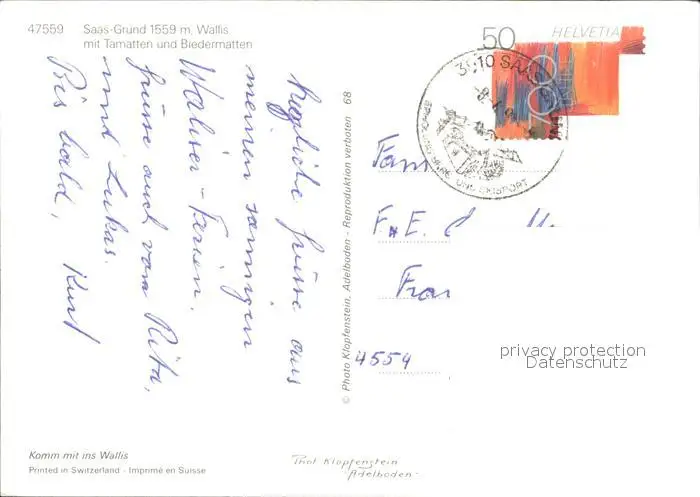 47559 Saas-Grund 1559 m, Wallis
mit Tamatten und Biedermatten
Herzliche Grüsse aus
meinen sonnigen
Walliser-Ferien.
Grüsse auch von Rita,
und Lukas.
Bis bald, Kurt
© Photo Klopfenstein, Adelboden - Reproduktion verboten 68
HELVETIA
50
3910 SAAS
UND SKISPORT
Fam
F. E.
4554
privacy protection
Datenschutz
Komm mit ins Wallis
Printed in Switzerland - Imprimé en Suisse
Phot Klopfenstein
Adelboden